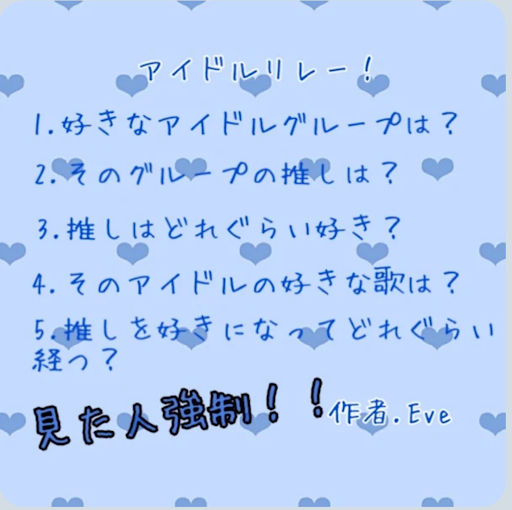 アイドルリレー！
1.好きなアイドルグループは？
2.そのグループの推しは？
3.推しはどれぐらい好き？
4.そのアイドルの好きな歌は？
5.推しを好きになってどれぐらい
経つ？
見た人強制！！
作者.Eve